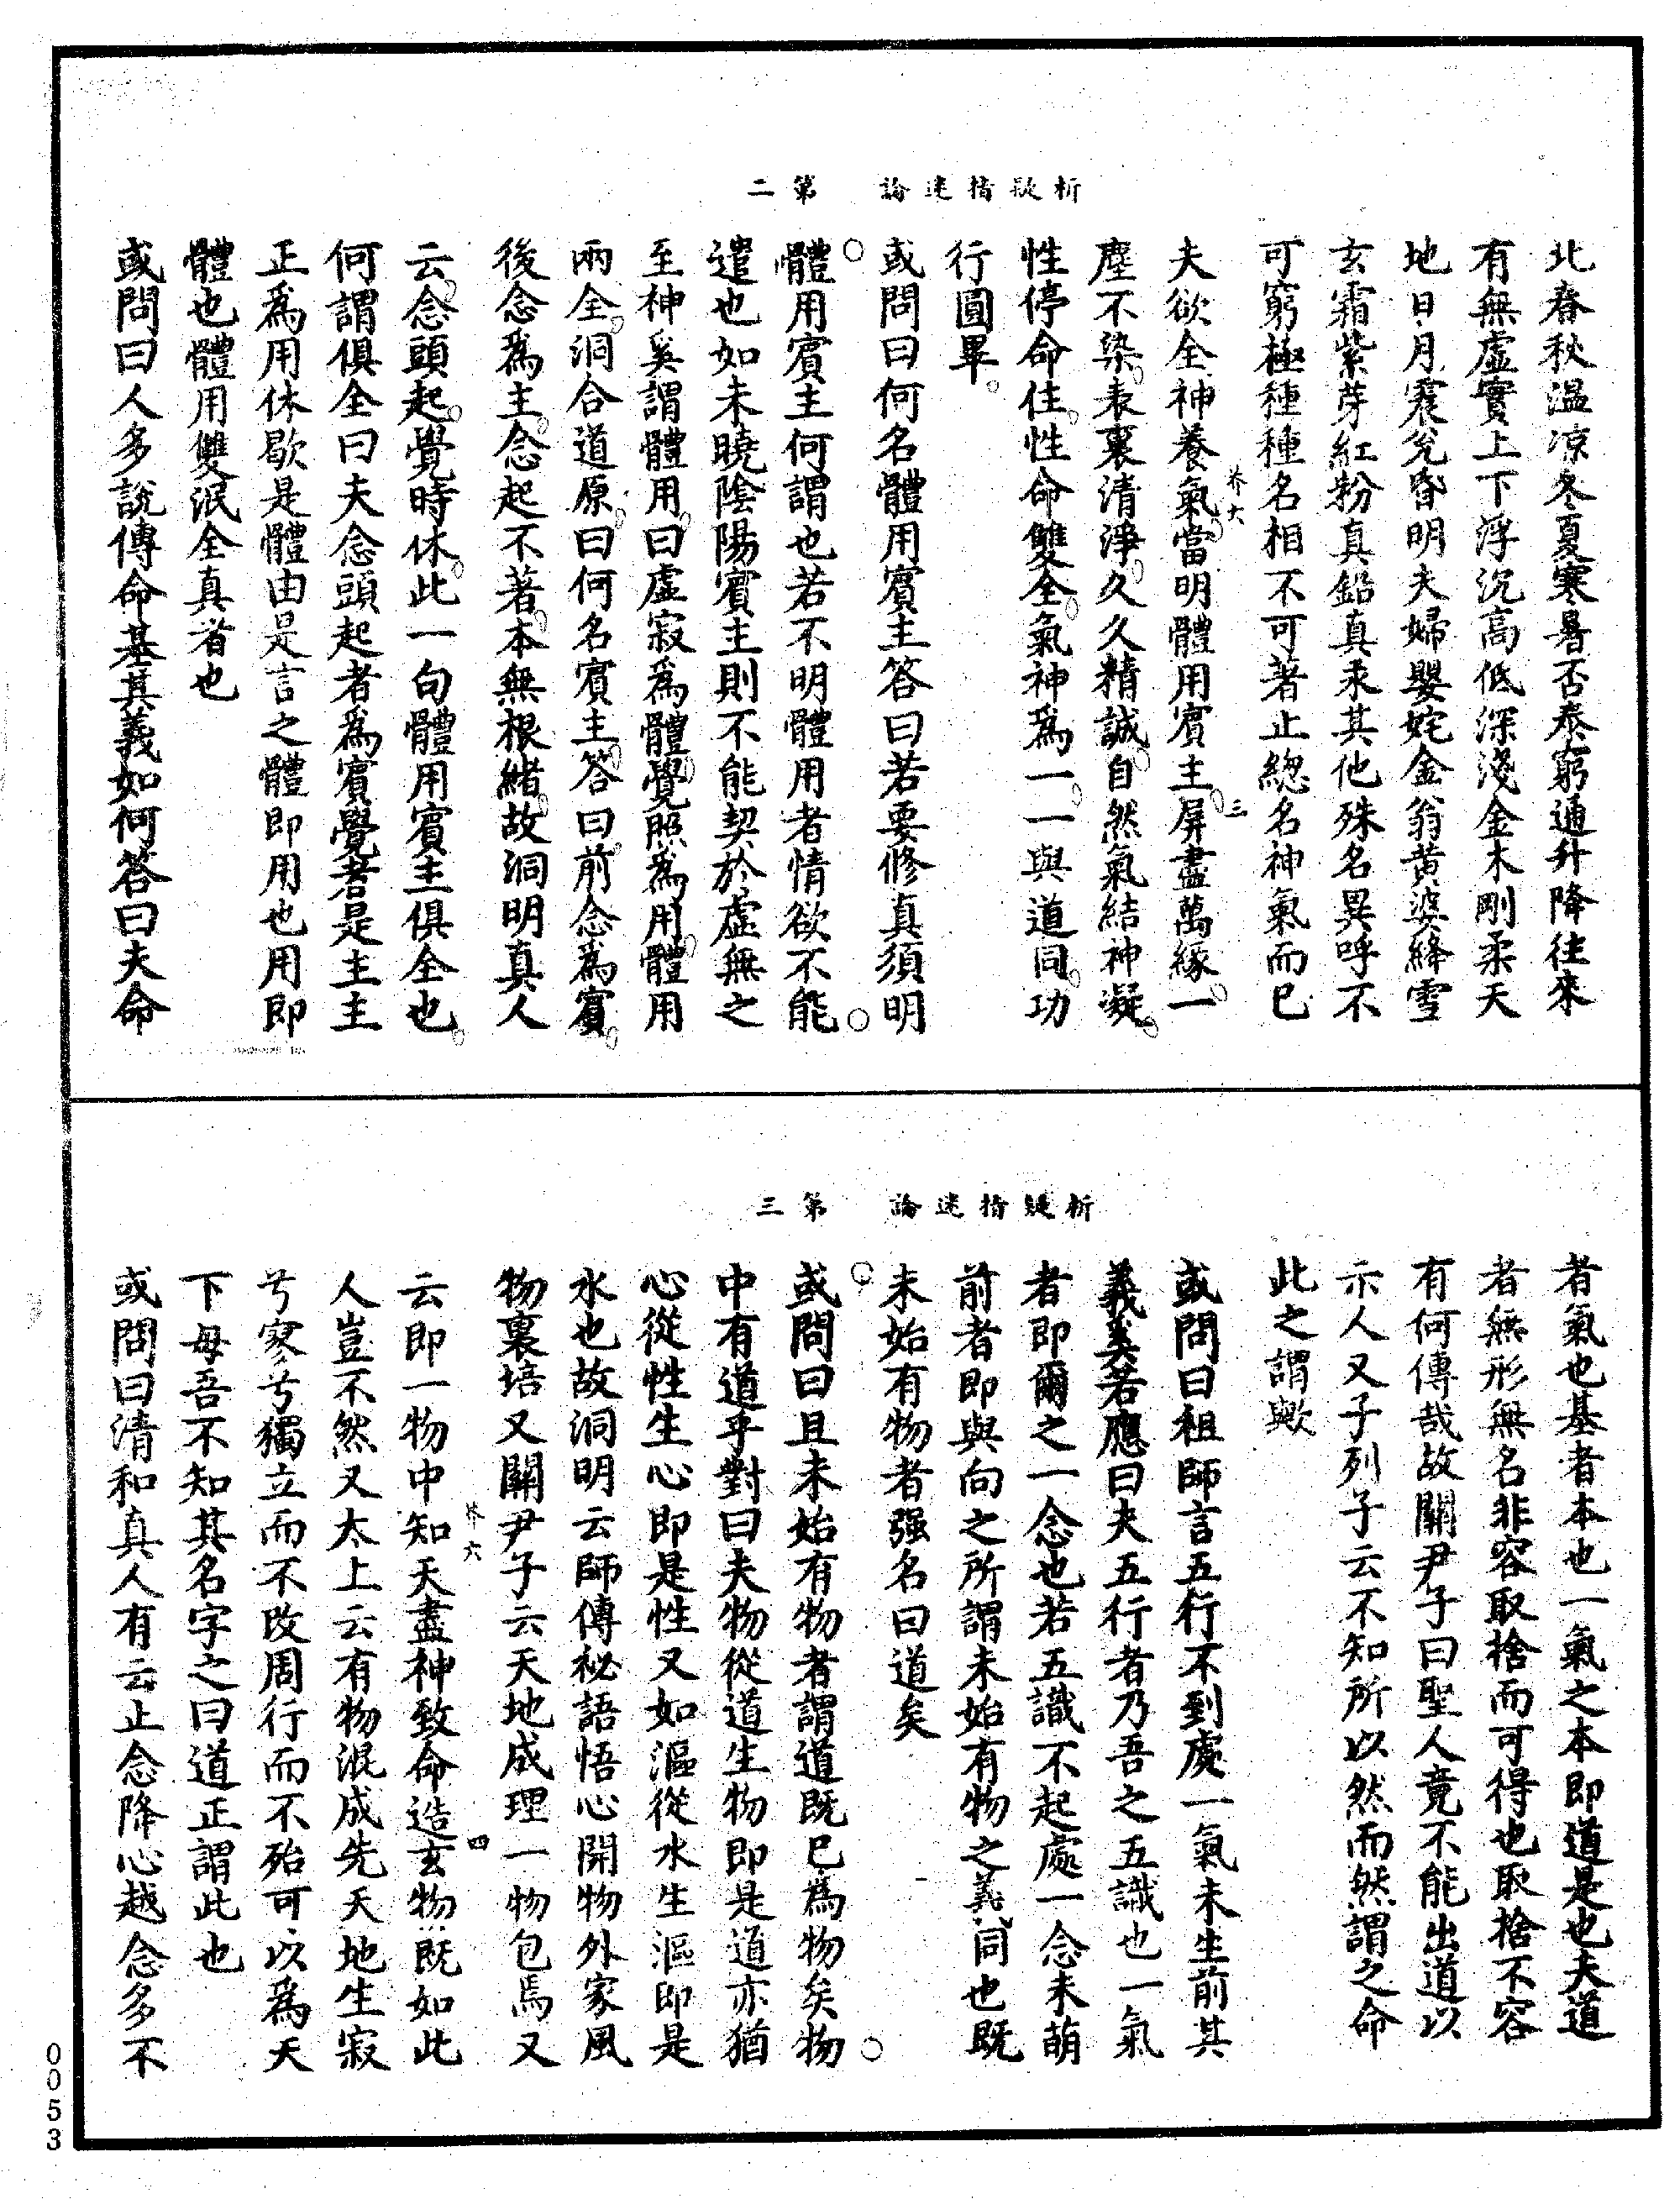 析疑指迷論　第二
北春秋温凉冬夏寒暑否泰窮通升降往來
有無虛實上下浮沉高低深淺金木剛柔天
地日月震兊昏明夫婦嬰姹金翁黄婆絳雪
玄霜紫芽紅粉真鉛真汞其他殊名異呼不
可窮極種種名相不可著止緫名神氣而已
夫欲全神養氣當明體用賓主屏盡萬緣一
芥六
三
塵不染表裏清淨久久精誠自然氣結神凝
性停命住性命雙全氣神爲一一與道同功
行圓畢
或問曰何名體用賓主答曰若要修真須明
體用賓主何謂也若不明體用者情欲不能
遣也如未曉陰陽賓主則不能契於虛無之
至神奚謂體用曰虛寂爲體覺照爲用體用
兩全洞合道原曰何名賓主答曰前念爲賓
後念爲主念起不著本無根緒故洞明真人
云念頭起覺時休此一句體用賓主俱全也
何謂俱全曰夫念頭起者爲賓覺者是主主
正爲用休歇是體由是言之體即用也用即
體也體用雙泯全真者也
或問曰人多說傳命基其義如何答曰夫命
析疑指迷論　第三
者氣也基者本也一氣之本即道是也夫道
者無形無名非容取捨而可得也取捨不容
有何傳哉故關尹子曰聖人竟不能出道以
示人又子列子云不知所以然而然謂之命
此之謂歟
或問曰祖師言五行不到處一氣未生前其
義奚若應曰夫五行者乃吾之五識也一氣
者即爾之一念也若五識不起處一念未萌
前者即與向之所謂未始有物之義同也既
未始有物者强名曰道矣
或問曰且未始有物者謂道既已爲物矣物
中有道乎對曰夫物從道生物即是道亦猶
心從性生心即是性又如漚從水生漚即是
水也故洞明云師傳祕語悟心開物外家風
物裏培又關尹子云天地成理一物包焉又
云即一物中知天盡神致命造玄物既如此
芥六
四
人豈不然又太上云有物混成先天地生寂
兮寥兮獨立而不改周行而不殆可以爲天
下母吾不知其名字之曰道正謂此也
或問曰清和真人有云止念降心越念多不
0053